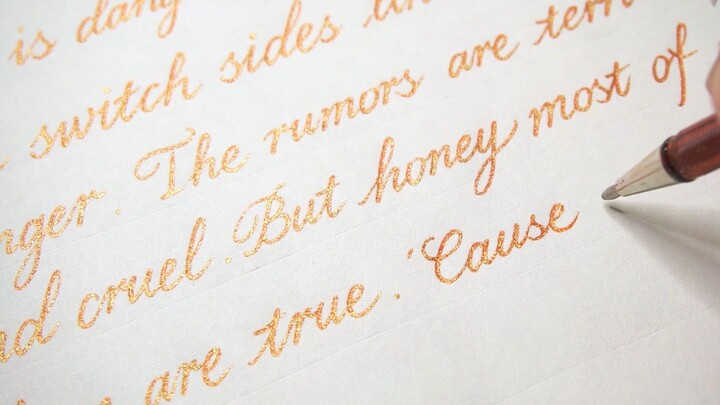 is dang
switch sides
nger. The rumors are terri
nd cruel. But honey most of
are true. 'Cause